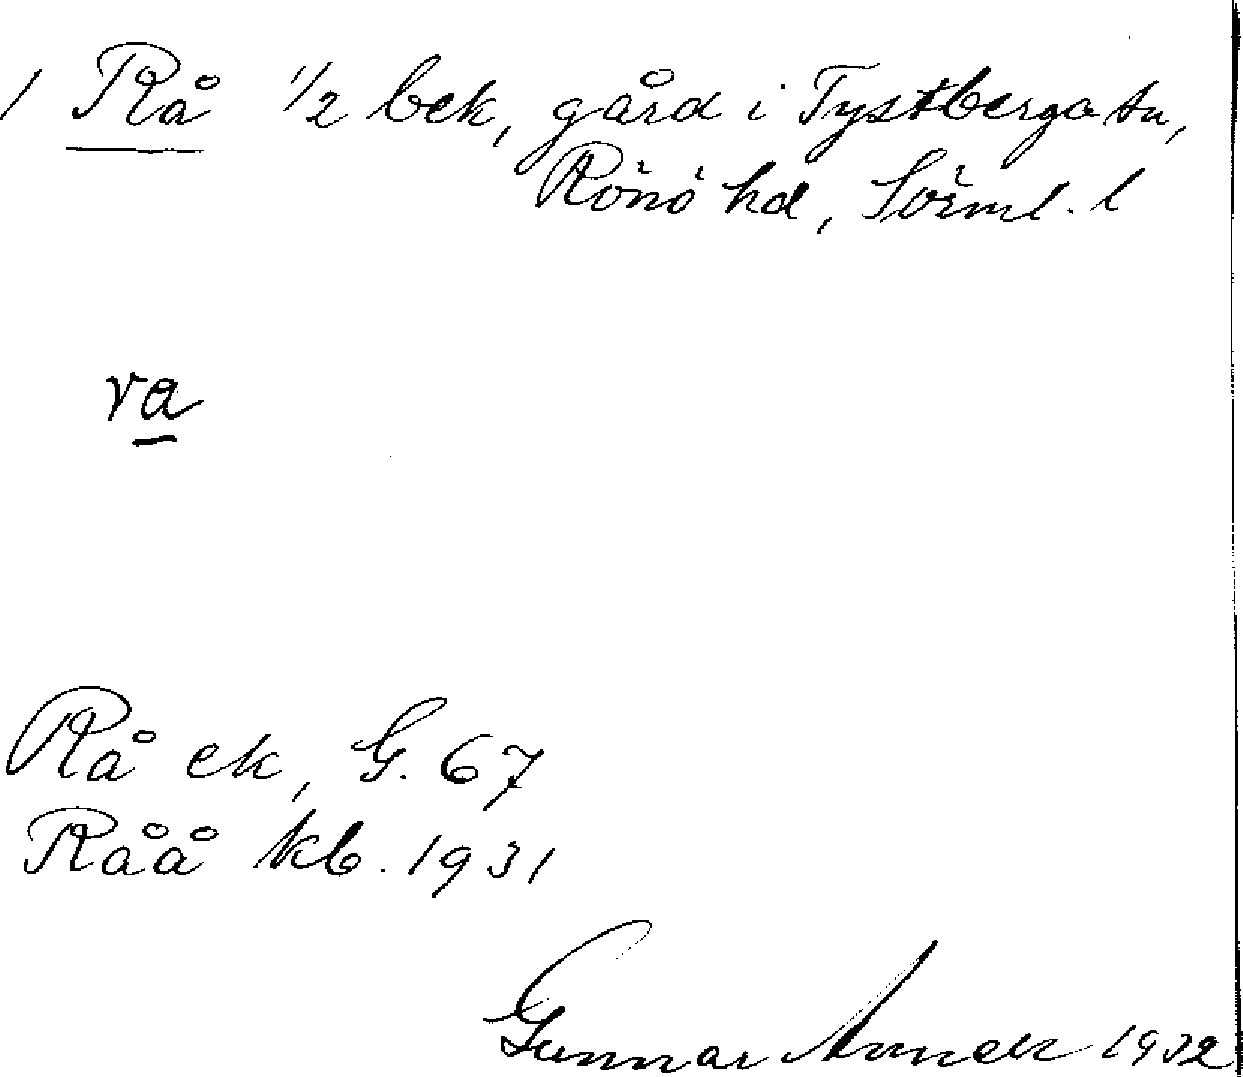 1 Rå 1/2 bek, gård i Tystberga sn,
Rönö hd, Sörml. l
ra
Rå ek, G. 67
Råå kb. 1931
Gunnar 1932